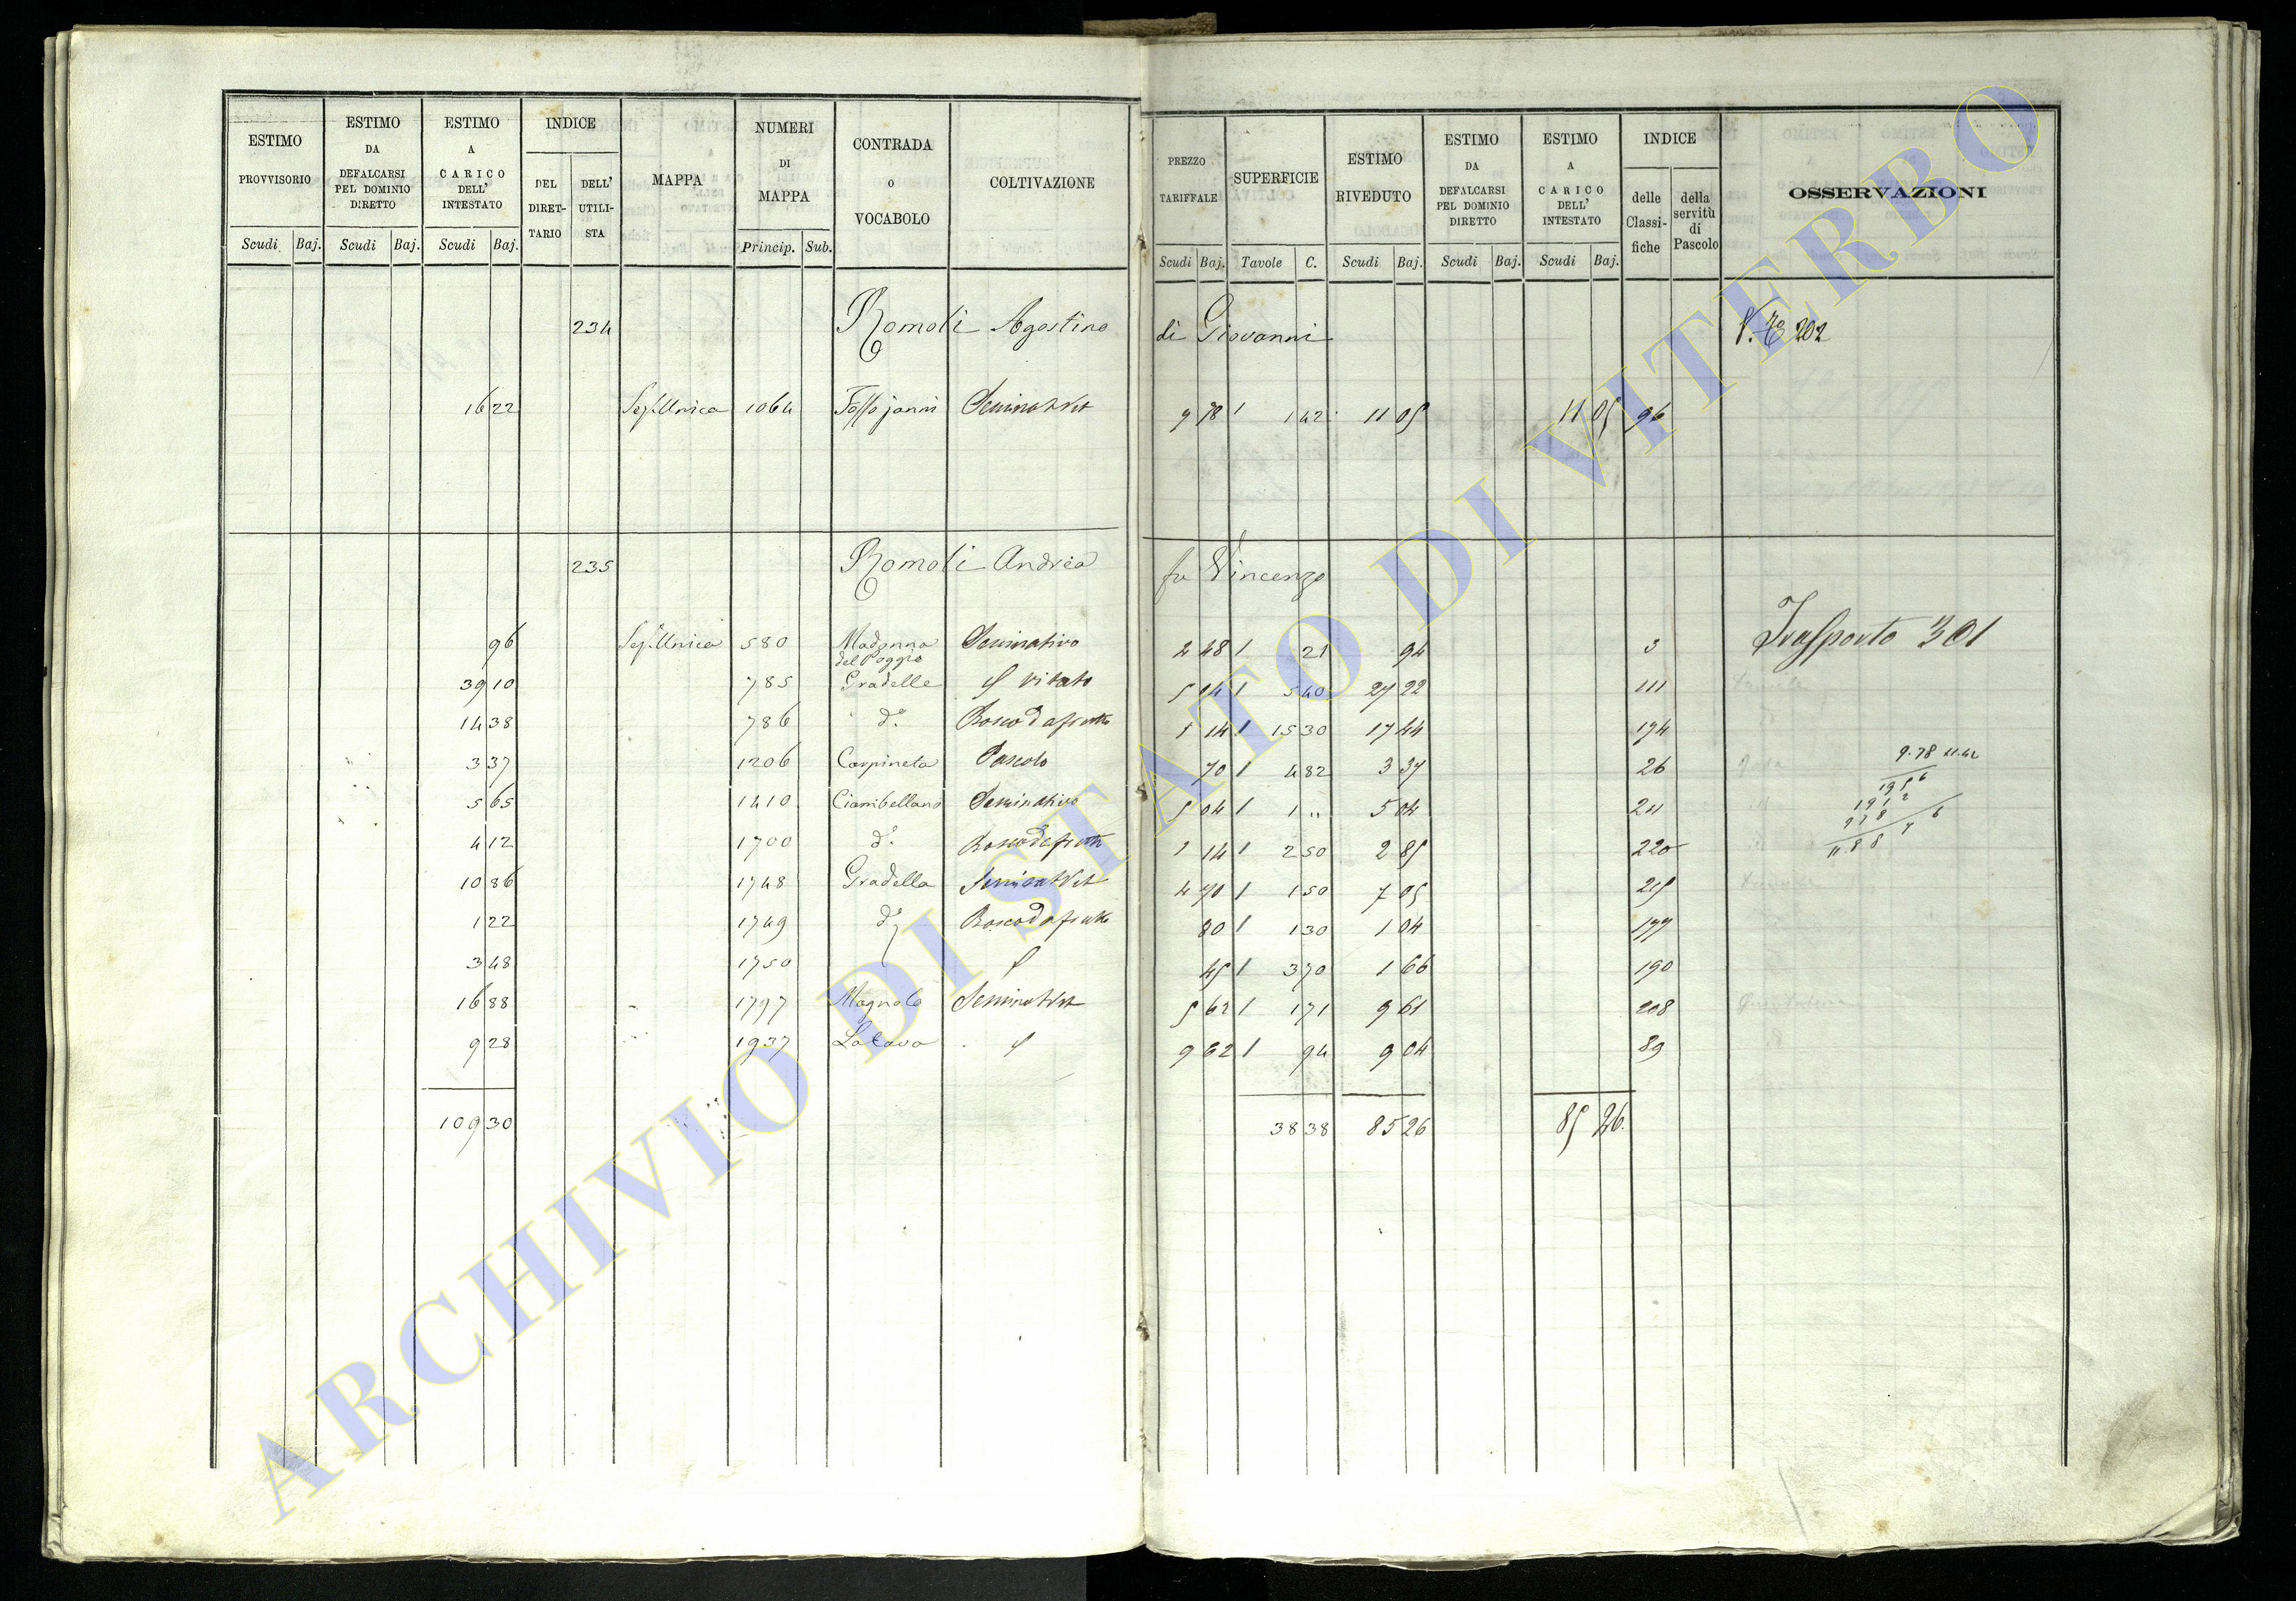 ESTIMO PROVVISORIO Scudi Baj.
ESTIMO DA DEFALCARSI PEL DOMINIO DIRETTO Scudi Baj.
ESTIMO A CARICO DELL' INTESTATO Scudi Baj.
INDICE DEL DIRETTARIO DELL' UTILISTA
MAPPA
NUMERI DI MAPPA Princip. Sub.
CONTRADA O VOCABOLO
COLTIVAZIONE
PREZZO TARIFFALE Scudi Baj.
SUPERFICIE Tavole C.
ESTIMO RIVEDUTO Scudi Baj.
ESTIMO DA DEFALCARSI PEL DOMINIO DIRETTO Scudi Baj.
ESTIMO A CARICO DELL' INTESTATO Scudi Baj.
INDICE delle Classifiche della servitù di Pascolo
OSSERVAZIONI
234 Romoli Agostino di Giovanni 202
16 22 Sez. Unica 1064 Fosso janni Seminat Vit 9 78 1 1 42 11 05 11 05 96
235 Romoli Andrea fu Vincenzo
Trasporto 301
96 Sez. Unica 580 Madonna del Poggio Seminativo 2 48 1 21 94 3
39 10 785 Gradelle vitato 5 04 1 5 40 27 22 111
14 38 786 d.º Bosco da frutto 1 14 1 15 30 17 44 174
3 37 1206 Carpineta Pascolo 70 1 4 82 3 37 26
5 65 1410 Ciambellano Seminativo 5 04 1 1 " 5 04 211
4 12 1700 d.º Bosco da frutto 1 14 1 2 50 2 85 220
10 86 1748 Gradella Seminat Vit 4 70 1 1 50 7 05 215
1 22 1749 d.º Bosco da frutto 80 1 1 30 1 04 177
3 48 1750 45 1 3 70 1 66 190
16 88 1797 Magnalo Seminat Vit 5 62 1 1 71 9 61 208
9 28 1937 La Cava 9 62 1 94 9 04 89
109 30 38 38 85 26 85 26
9.78
1956
ARCHIVIO DI STATO DI VITERBO